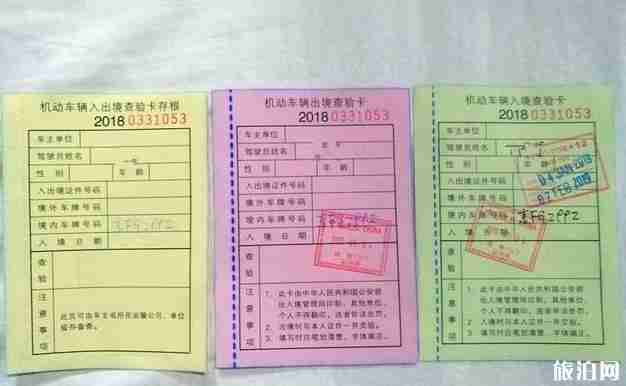 机动车辆入出境查验卡存根
2018 0331053
车主单位
驾驶员姓名
性别
年龄
入出境证件号码
境外车牌号码
境内车牌号码
入境日期
查验
注意事项
此页可由车主或所在运输公司、单位
留存备查。
机动车辆出境查验卡
2018 0331053
车主单位
驾驶员姓名
性别
年龄
入出境证件号码
境外车牌号码
境内车牌号码
入境日期
查验
注意事项
1、此卡由中华人民共和国公安部
出入境管理局印制，其他单位、
个人不得翻印，违者依法处罚。
2、出境时与本人证件一并交验。
3、填写时字迹清楚、字体端正。
机动车辆入境查验卡
2018 0331053
车主单位
驾驶员姓名
性别
年龄
入出境证件号码
境外车牌号码
境内车牌号码
入境日期
查验
注意事项
1、此卡由中华人民共和国公安部
出入境管理局印制，其他单位、
个人不得翻印，违者依法处罚。
2、入境时与本人证件一并交验。
3、填写时字迹清楚、字体端正。
04 JAN 2019
07 FEB 2019
旅泊网